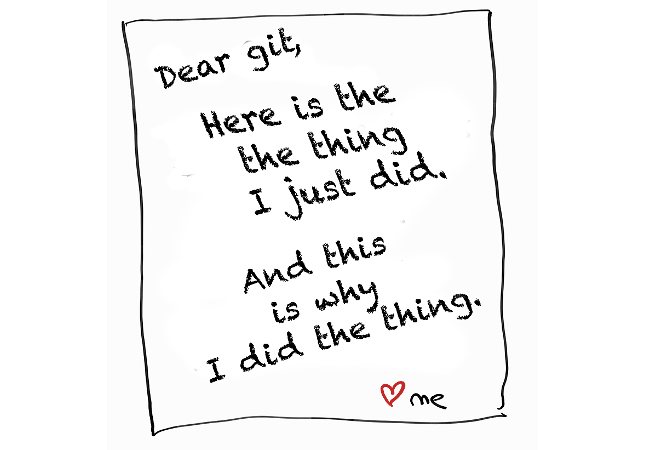 Dear git,
Here is the
the thing
I just did.
And this
is why
I did the thing.
me